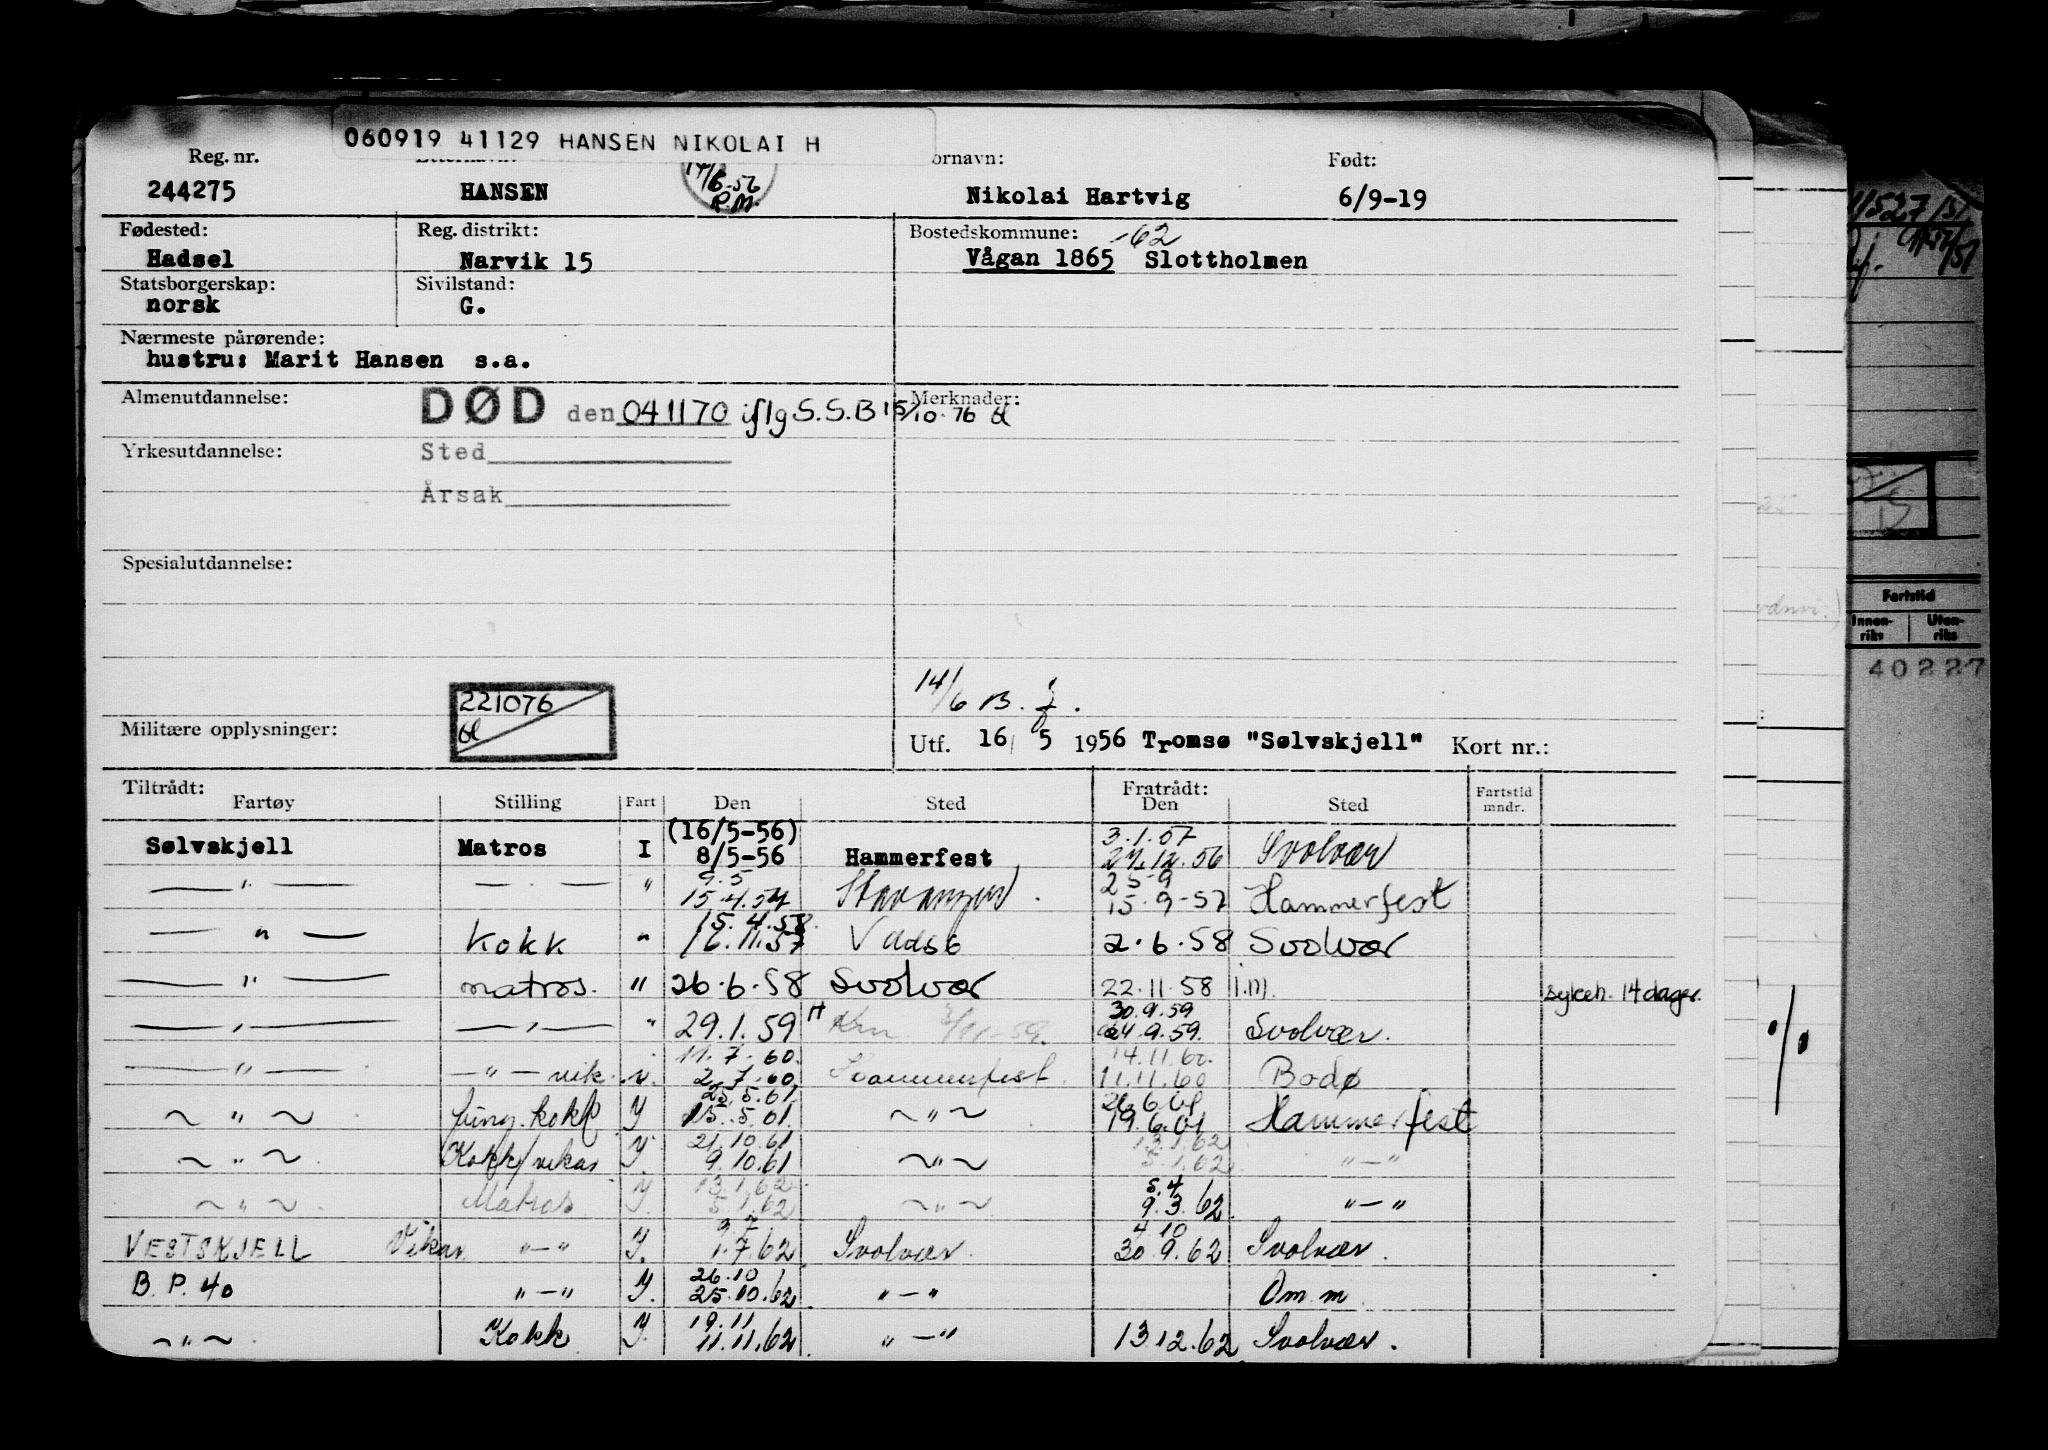 060919 41129 HANSEN NIKOLAI H
Reg. nr. Etternavn: Fornavn: Født:
244275 HANSEN 14/6-56 R.M. Nikolai Hartvig 6/9-19
Fødested: Reg. distrikt: Bostedskommune: -62
Hadsel Narvik 15 Vågan 1865 Slottholmen
Statsborgerskap: Sivilstand:
norsk G.
Nærmeste pårørende:
hustru: Marit Hansen s.a.
Almenutdannelse: DØD den 041170 iflg S.S.B 15/10-76 Merknader:
Yrkesutdannelse: Sted
Årsak
Spesialutdannelse:
221076
14/6 B.
Militære opplysninger: Utf. 16/5 1956 Tromsø "Sølvskjell" Kort nr.:
Tiltrådt: Fratrådt:
Fartøy Stilling Fart Den Sted Den Sted Fartstid mndr.
(16/5-56) 3.1.57
Sølvskjell Matros I 8/5-56 Hammerfest 27.12.56 Svolvær
9.5 25-9
—"— —"— " 15.4.57 Stavanger 15.9-57 Hammerfest
15.4.58
—"— Kokk " 16.11.57 Vadsø 2.6.58 Svolvær
—"— matros. " 26.6.58 Svolvær 22.11.58 i.m. sykeh. 14 dager.
30.9.59
—"— —"— " 29.1.59 24.9.59. Svolvær.
11.7.60. 14.11.60.
—"— —"— vik. " 2.7.60 Hammerfest 11.11.60 Bodø
25.5.61 26.6.61
~"~ kokk Y 15.5.61. ~"~ 19.6.61 Hammerfest
21.10.61 13.1.62
~"~ Kokk/vikar Y. 9.10.61 ~"~ 5.1.62 "—"
13.1.62 5.4
~"~ Matros Y. 5.1.62 ~"~ 9.3.62. "—"
9.7 4.10
VESTSKJELL Vikar "—" Y. 1.7.62 Svolvær. 30.9.62 Svolvær.
26.10
B.P. 40 "—" Y. 25.10.62 "—" Om m
19.11
~"~ Kokk Y. 11.11.62 "—" 13.12.62 Svolvær.
Fartstid
Innen-riks Uten-riks
40227